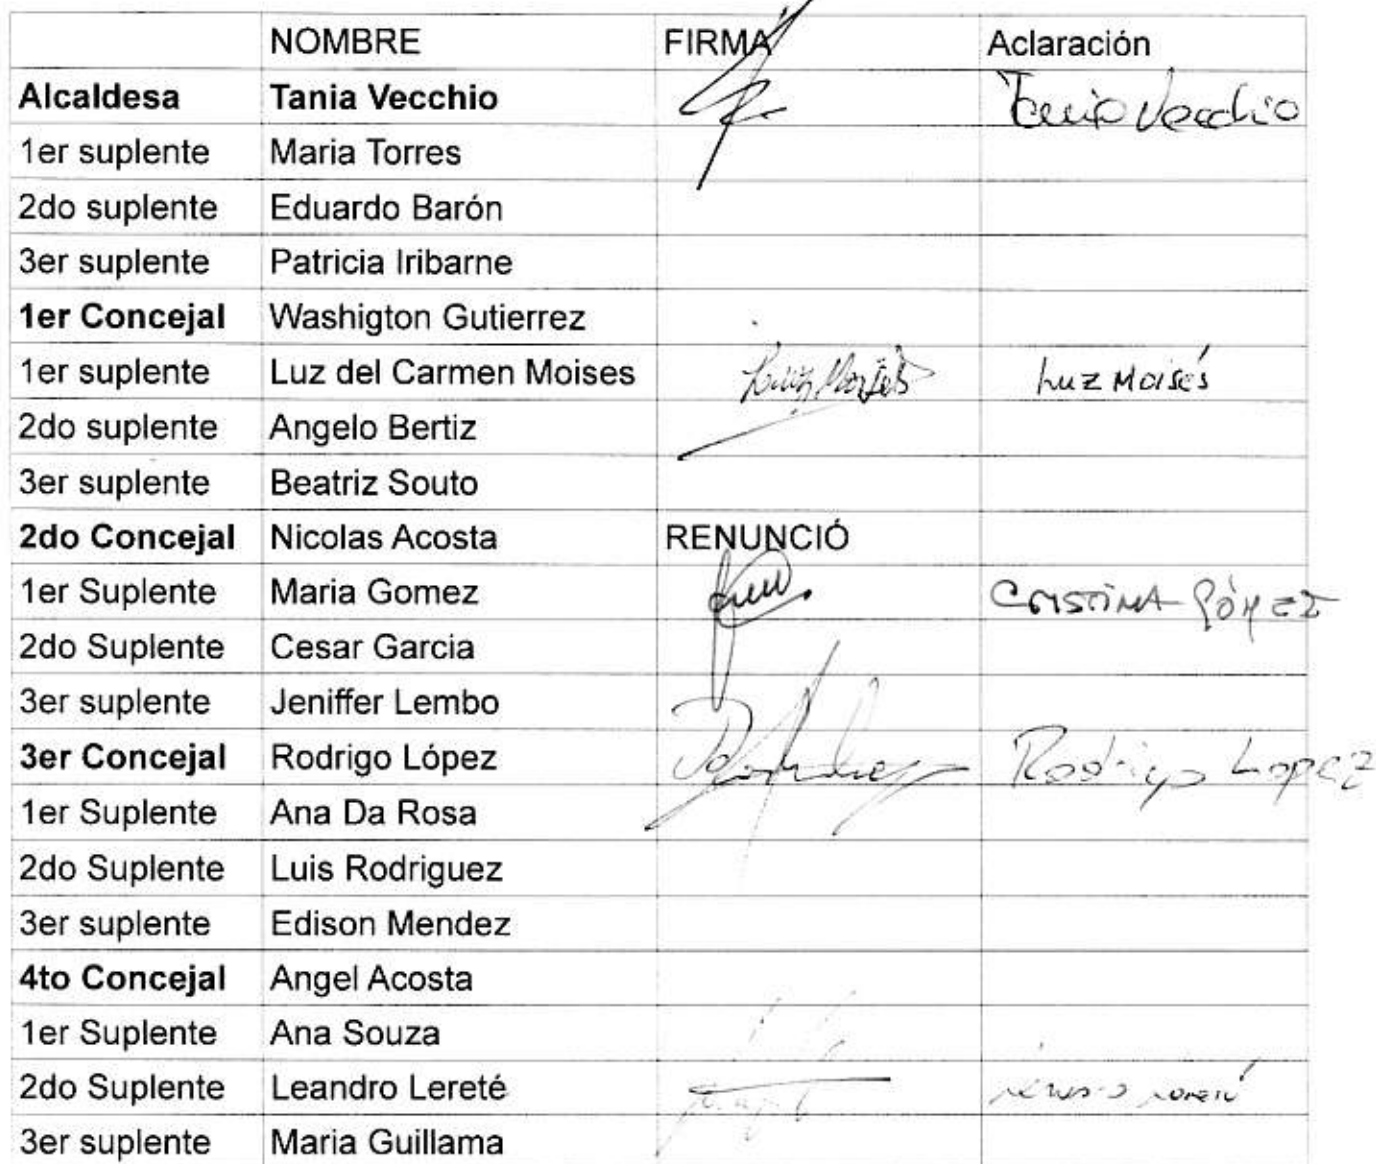 NOMBRE FIRMA Aclaración
Alcaldesa Tania Vecchio Tania Vecchio
1er suplente Maria Torres
2do suplente Eduardo Barón
3er suplente Patricia Iribarne
1er Concejal Washigton Gutierrez
1er suplente Luz del Carmen Moises Luz Moisés
2do suplente Angelo Bertiz
3er suplente Beatriz Souto
2do Concejal Nicolas Acosta RENUNCIÓ
1er Suplente Maria Gomez CRISTINA GÓMEZ
2do Suplente Cesar Garcia
3er suplente Jeniffer Lembo
3er Concejal Rodrigo López Rodrigo Lopez
1er Suplente Ana Da Rosa
2do Suplente Luis Rodriguez
3er suplente Edison Mendez
4to Concejal Angel Acosta
1er Suplente Ana Souza
2do Suplente Leandro Lereté
3er suplente Maria Guillama